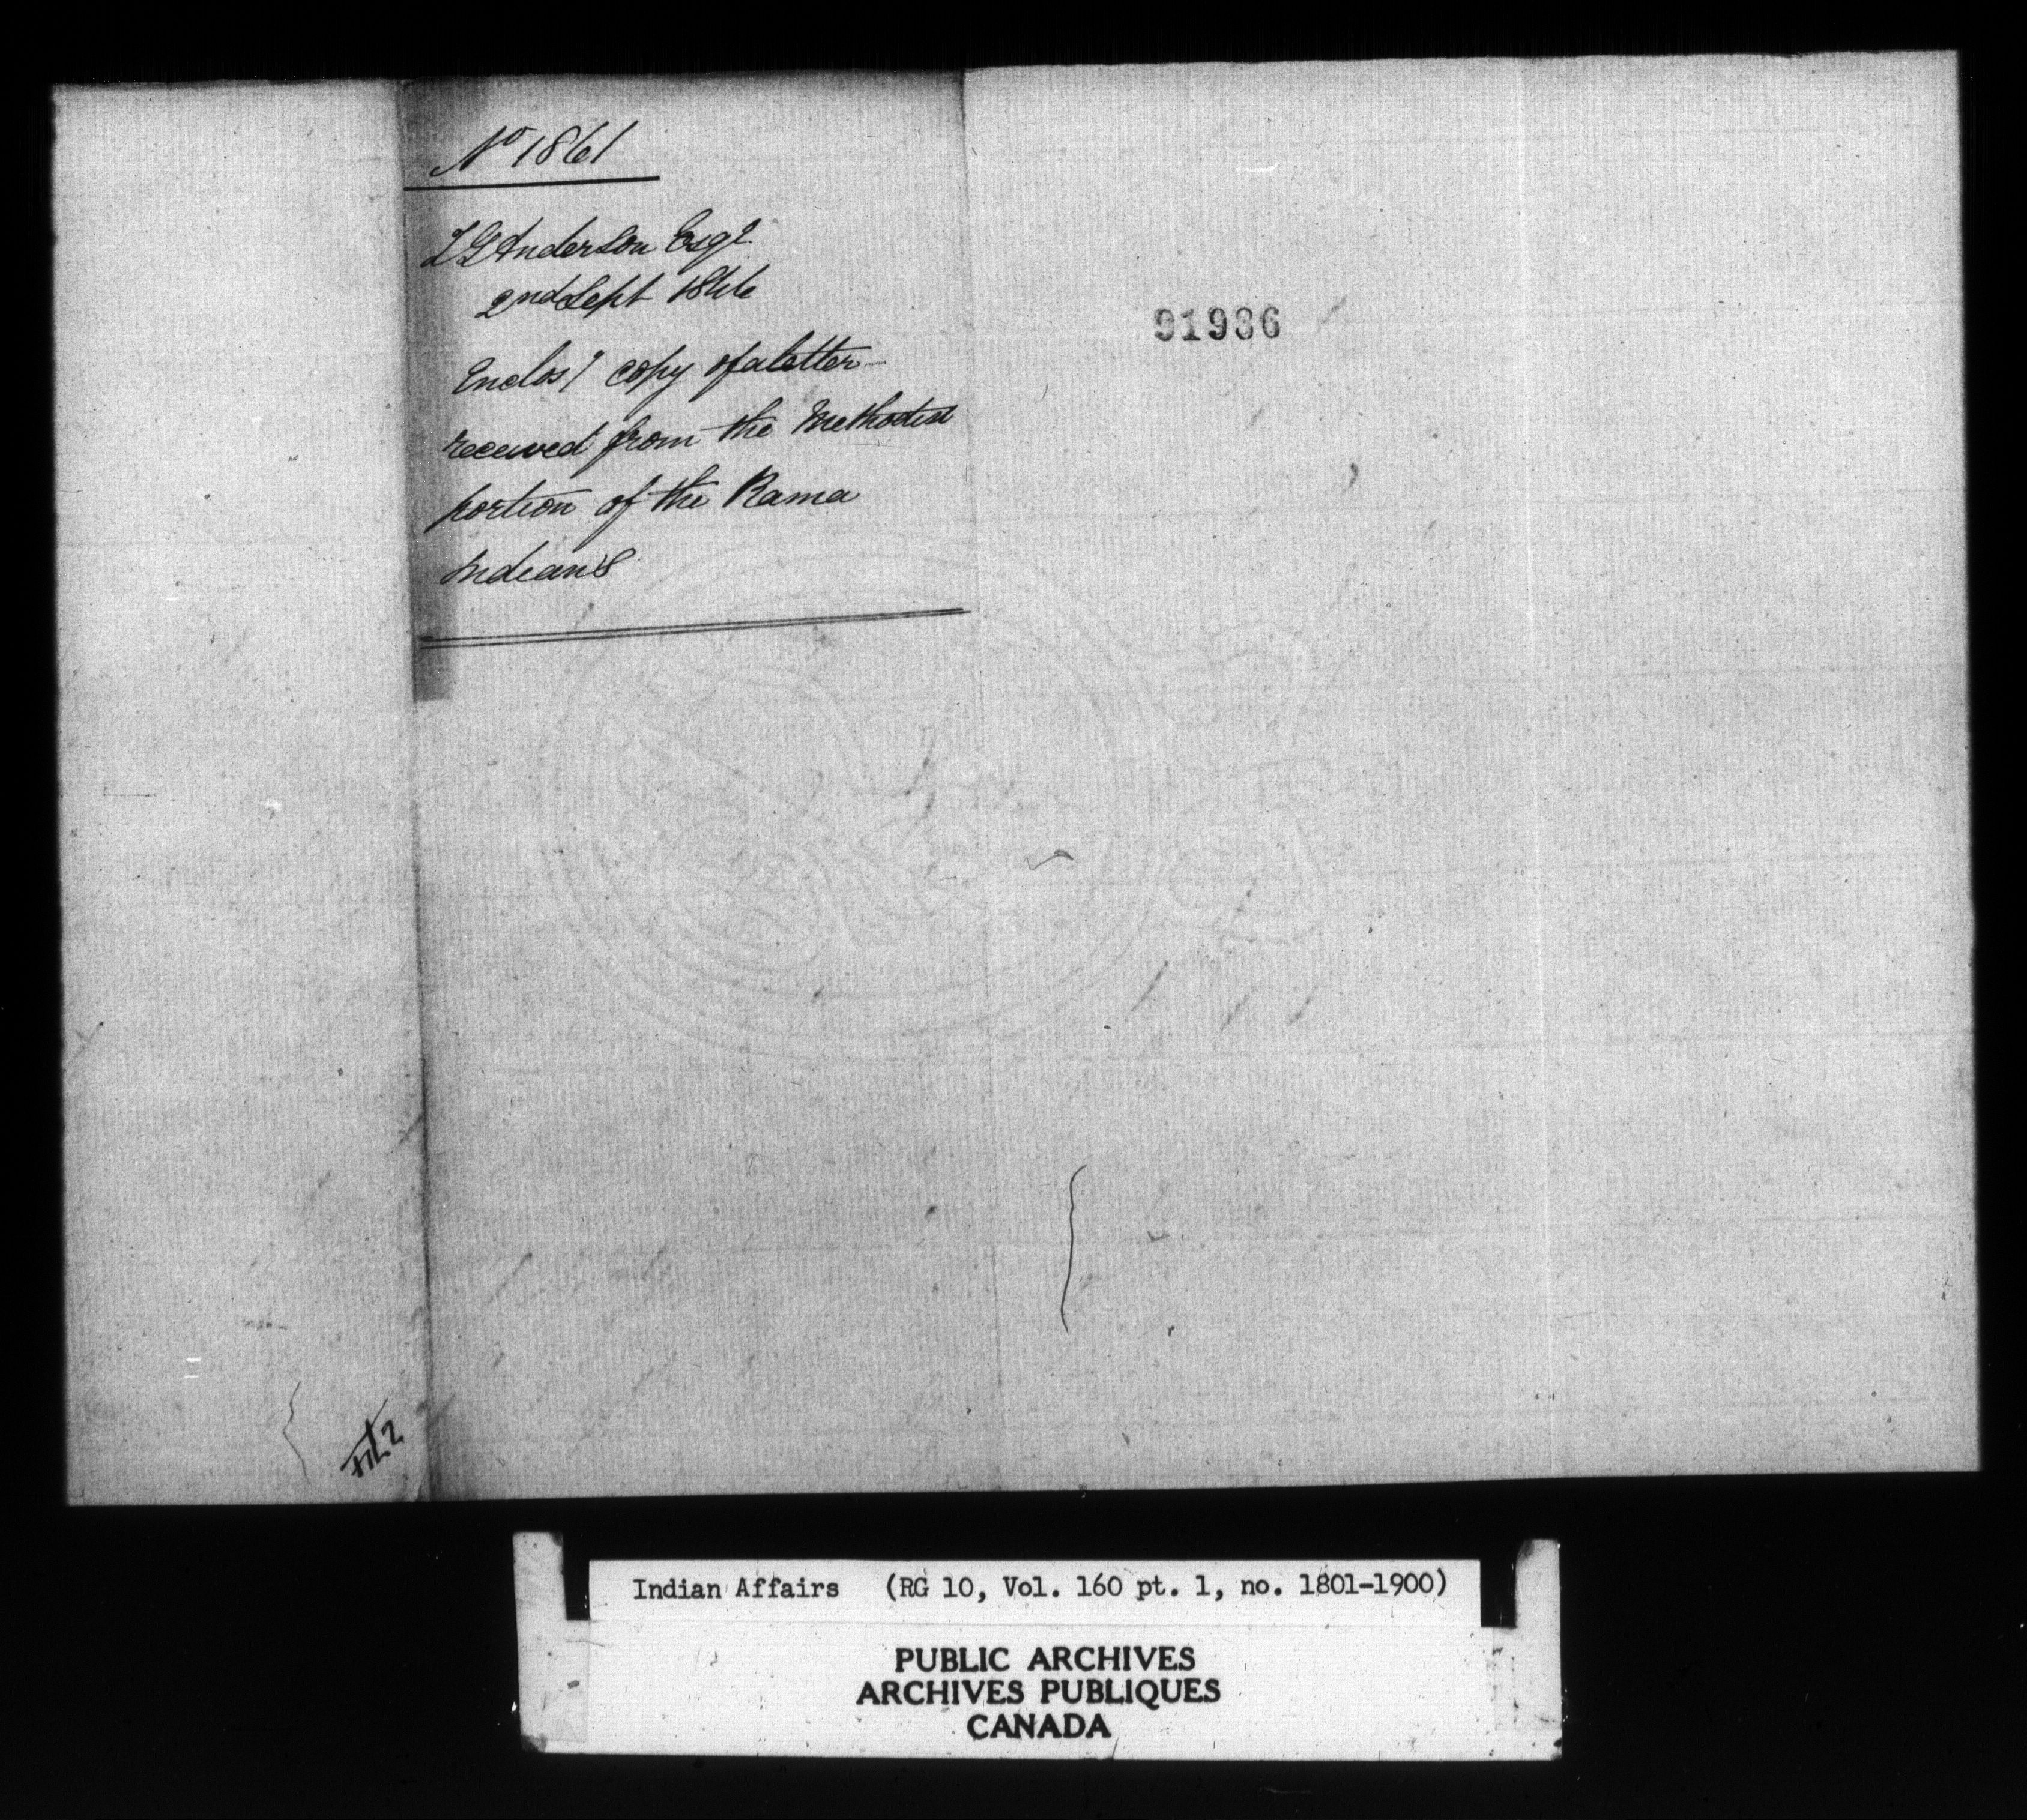 No 1861
T G Anderson Esqr
2nd Sept 1846
Enclosg copy of a letter
received from the Methodist
portion of the Rama
Indians
91936
Indian Affairs (RG 10, Vol. 160 pt. 1, no. 1801-1900)
PUBLIC ARCHIVES
ARCHIVES PUBLIQUES
CANADA